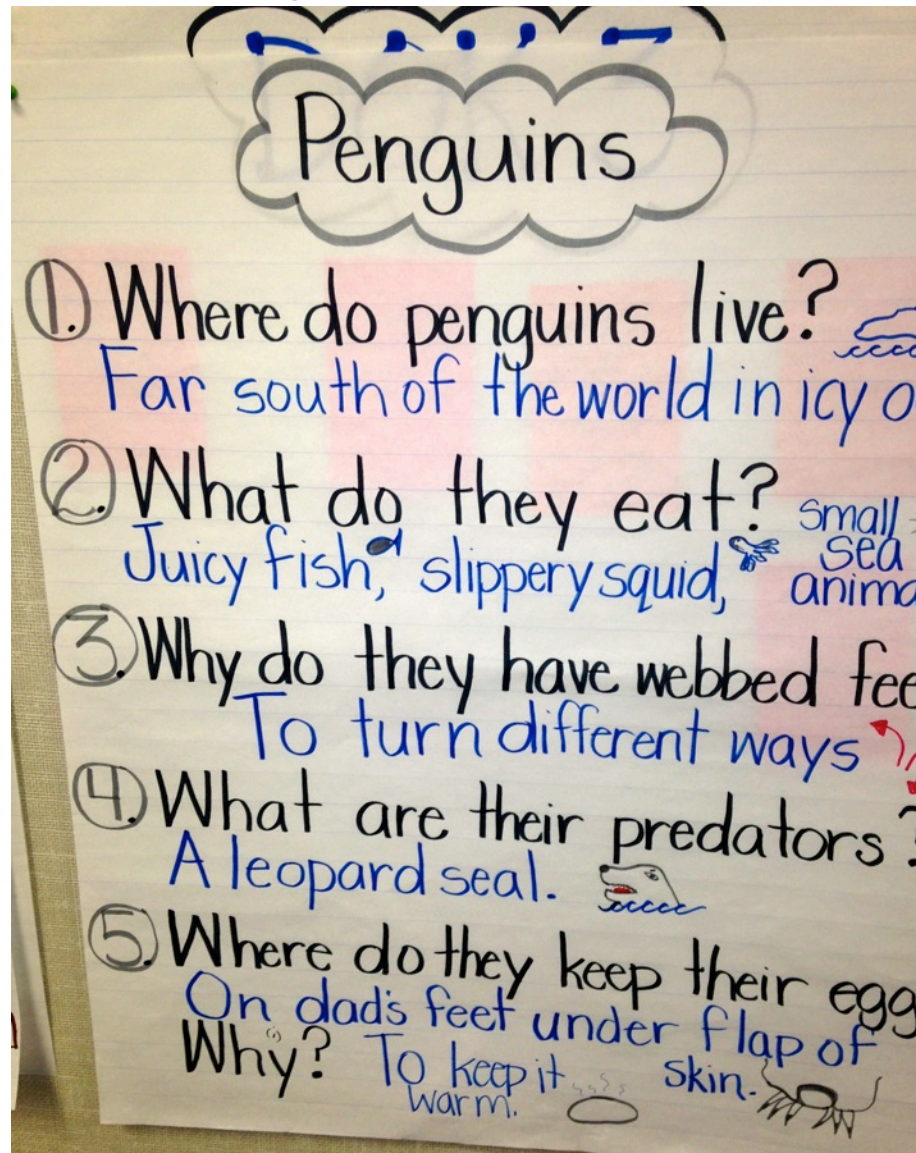 Penguins
1. Where do penguins live?
Far south of the world in icy
2. What do they eat?
Juicy fish, slippery squid, small sea
3. Why do they have webbed
To turn different ways
4. What are their predators?
A leopard seal.
5. Where do they keep their
On dad's feet under flap of skin.
Why? To keep it warm.